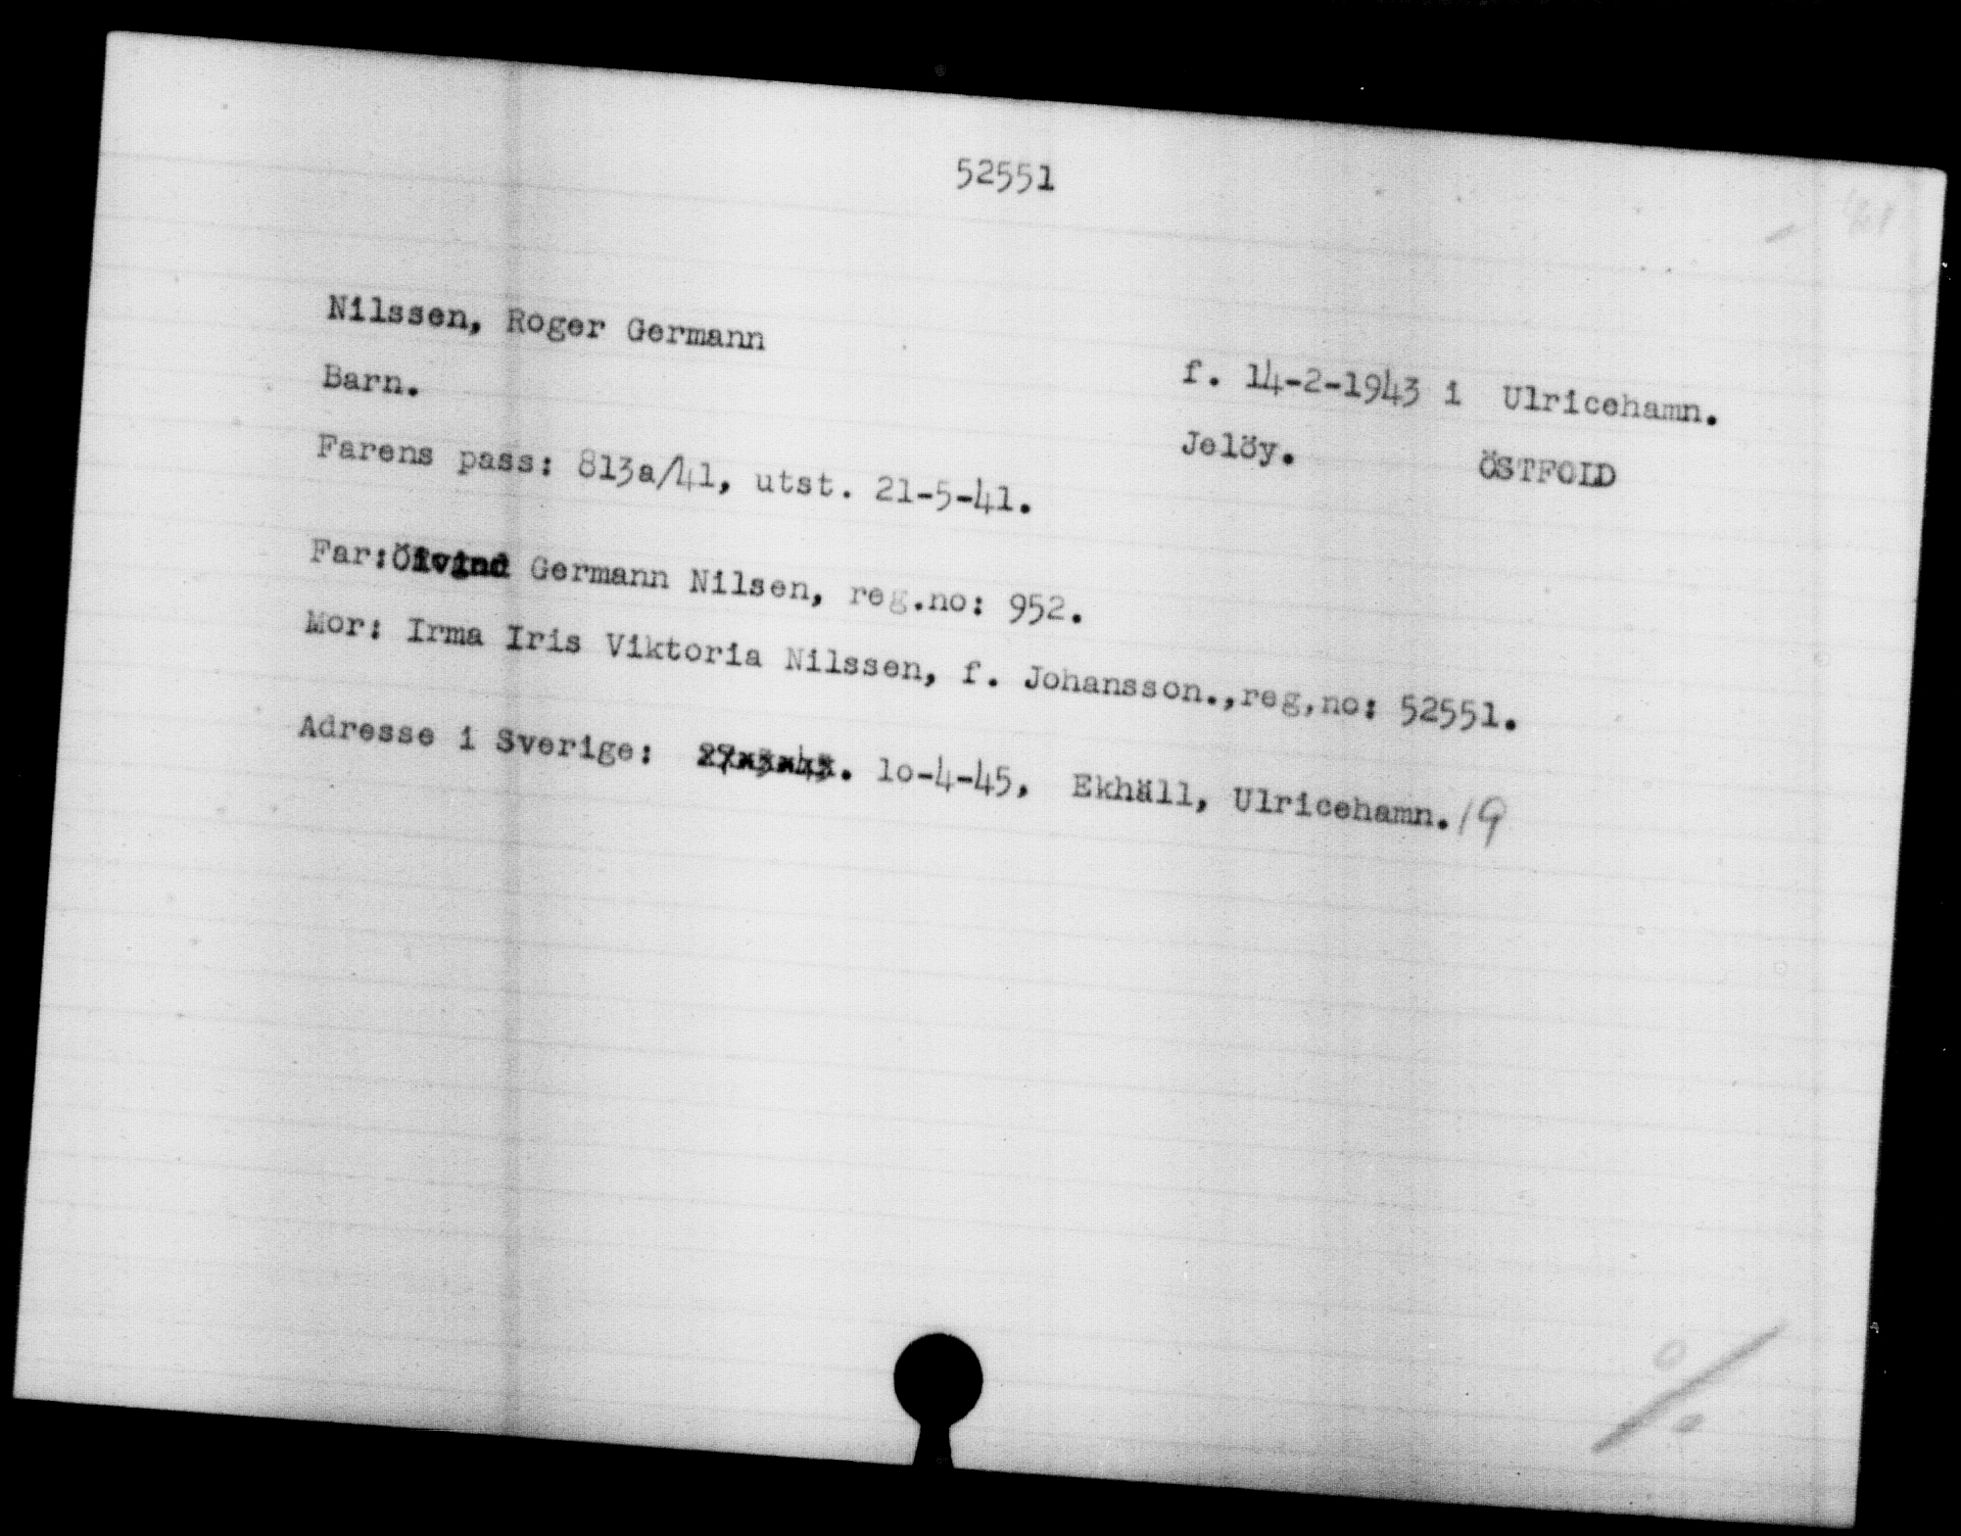 52551
Nilssen, Roger Germann
f. 14-2-1943 i Ulricehamn.
Barn.
Jelöy. ÖSTFOLD
Farens pass: 813a/41, utst. 21-5-41.
Far:Öivind Germann Nilsen, reg.no: 952.
Mor: Irma Iris Viktoria Nilssen, f. Johansson.,reg,no: 52551.
Adresse i Sverige: 10-4-45, Ekhäll, Ulricehamn./9
%